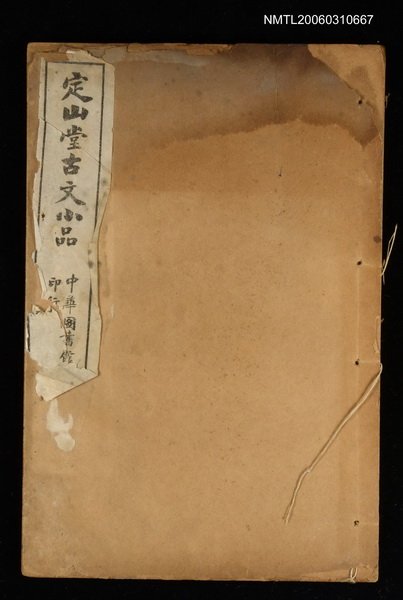 NMTL20060310667
定山堂古文小品
中華圖書館
印行